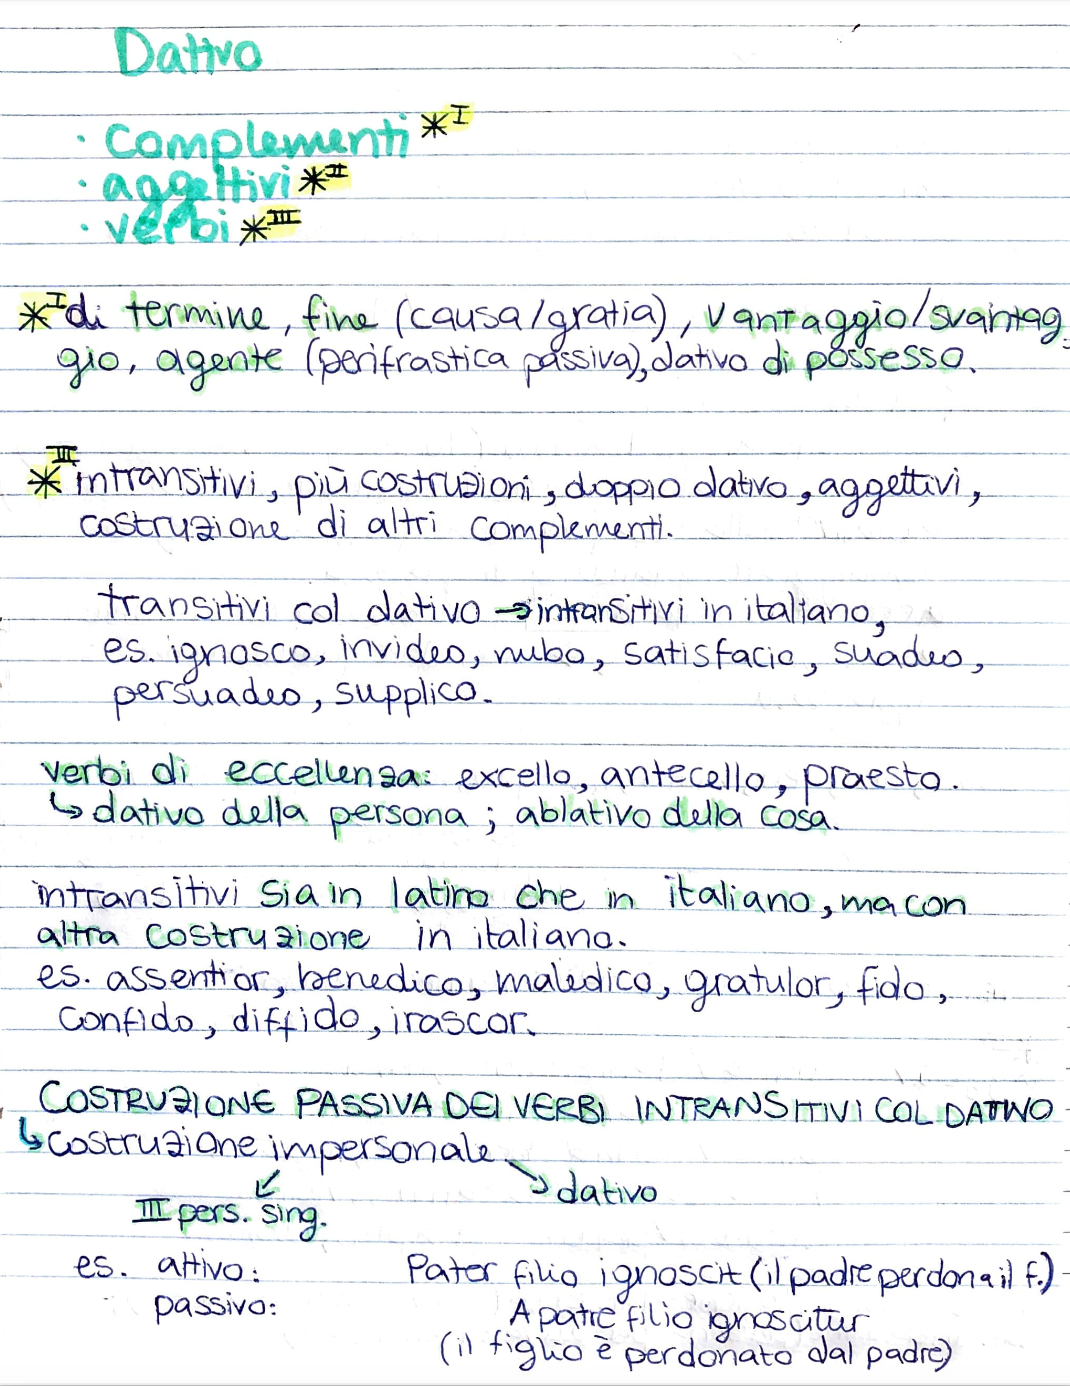 Dativo
· complementi *I
· aggettivi *II
· verbi *III
*I di termine, fine (causa/gratia), vantaggio/svantag-
gio, agente (perifrastica passiva), dativo di possesso.
*III intransitivi, più costruzioni, doppio dativo, aggettivi,
costruzione di altri complementi.
transitivi col dativo → intransitivi in italiano,
es. ignosco, invideo, nubo, satisfacio, suadeo,
persuadeo, supplico.
verbi di eccellenza: excello, antecello, praesto.
↳ dativo della persona; ablativo della cosa.
intransitivi sia in latino che in italiano, ma con
altra costruzione in italiano.
es. assentior, benedico, maledico, gratulor, fido,
confido, diffido, irascor.
COSTRUZIONE PASSIVA DEI VERBI INTRANSITIVI COL DATIVO
↳ costruzione impersonale
↘ dativo
↙ III pers. sing.
es. attivo: Pater filio ignoscit (il padre perdona il f.)
passivo: A patre filio ignoscitur
(il figlio è perdonato dal padre)